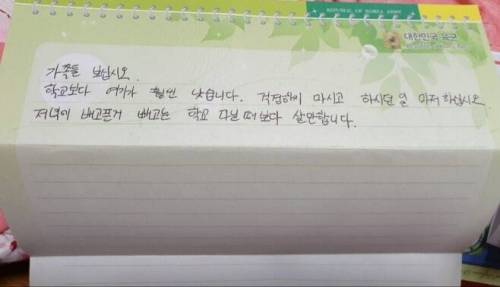 REPUBLIC OF KOREA ARMY
대한민국 육군
가족들 보십시오.
학교보다 여기가 훨씬 낫습니다. 걱정하지 마시고 하시던 일 마저 하십시오
저녁에 배고픈거 빼고는 학교 다닐 때보다 살만합니다.